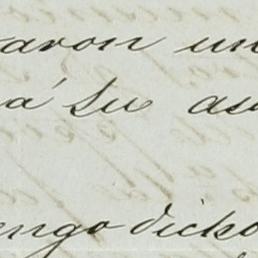 aron un
á su as
engo dicho